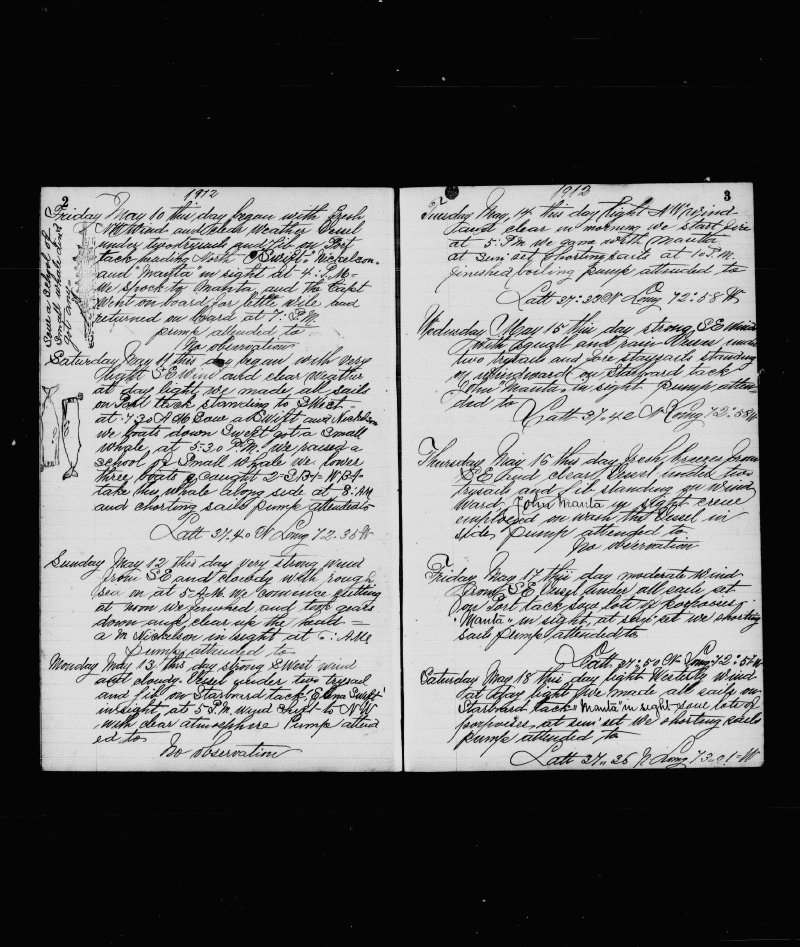 2
1912
Saw a school of
small whale dont
got any
Friday May 10 this day began with fresh
NW Wind and clear Weather Vessel
under two trysails and jib on Port
tack heading North Swift Nickelson
and Manta in sight at 4: P.M.
We spock to Manta, and the Capt
Went on board for little wile and
returned on board at 7: P.M.
pump attended to
No observation
Saturday May 11 this day began with very
light S.E Wind and clear Weather
at day light, we made all sails
on Port tack standing to S West
at 7.30 A.M Saw a Swift and Nickelson
we boats down Swift got a small
whale at 5.30 P.M. we raised a
school of Small whale we lower
three boats caught 2
take this whale along side at 8: AM
and shorting sails Pump attended
Latt 37.40 N Long 72.35 W
Sunday May 12 this day very strong wind
from S.E and cloudy with rough
sea on at 5 A.M. We comence cutting
at noon we finished and
down and clear up the head
a M Nickelson in sight at 6: AM
Pump attended to
Monday May 13 this day strong S West wind
and cloudy. Vessel under two trysail
and jib on Starboard tack, Swift
in sight, at 5 P.M. wind shift to N.W
with clear atmosphere Pump attend
ed to
No observation
3
1912
Tuesday May 14 this day light N W wind
and clear in morning we start fire
at 5: P.M we gam with Manta
at sun set shorting sails at 10 P.M.
finished boiling pump attended to
Latt 37:33 N Long 72:58 W
Wednesday May 15 this day strong S.E Wind
with squall and rain under
two trysails and fore staysails standing
on windward on Starboard tack
John Manta in sight Pump atten
ded to
Latt 37.42 N Long 72:58 W
Thursday May 16 this day fresh breeze from
S.E and clear, Vessel under two
trysails and jib standing on wind
ward, John Manta in sight crew
employed on wash the Vessel in
side, Pump attended to
No observation
Friday May 17 this day moderate wind
from S.E Vessel under all sails set
on Port tack saw lots of porpoises
"Manta" in sight, at sun set we shorting
sails Pump attended to
Latt 37:50 N Long 72:57 W
Saturday May 18 this day light Westerly wind
at day light we made all sails on
Starboard tack Manta in sight saw lots of
porpoises, at sun set we shorting sails
pump attended to
Latt 37,, 26 N Long 73,,01 W